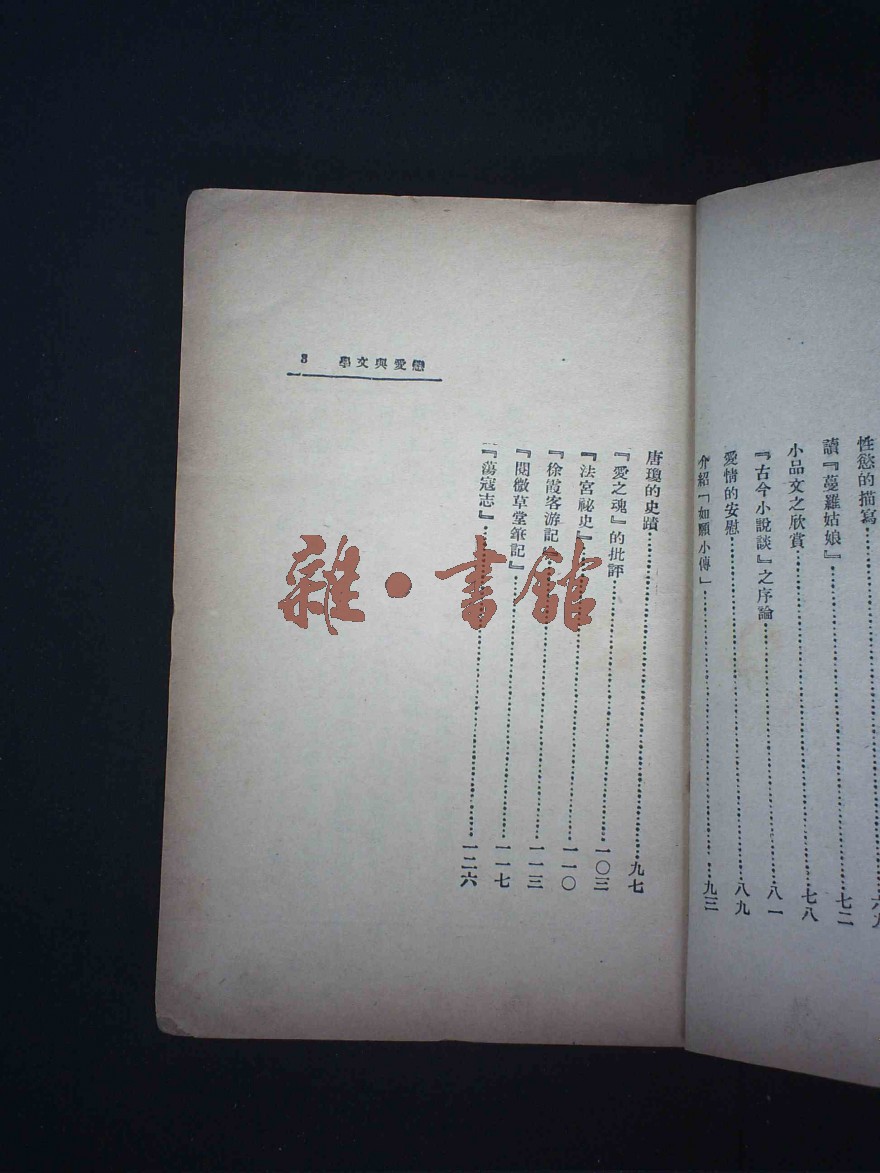 性慾的描寫……六九
讀『蔓羅姑娘』……七二
小品文之欣賞……七八
『古今小說談』之序論……八一
愛情的安慰……八九
介紹「如願小傳」……九三
戀愛與文學 3
唐瓊的史蹟……九七
『愛之魂』的批評……一〇三
『法宮祕史』……一一〇
『徐霞客游記』……一一三
『閱微草堂筆記』……一一七
『蕩寇志』……一二六
雜·書館